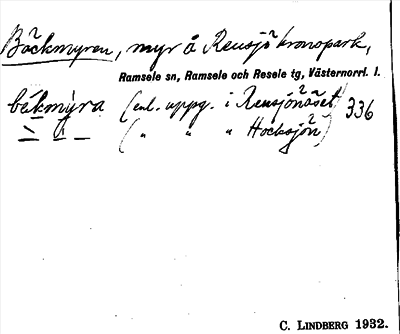 Bäckmyren, myr å Rensjö kronopark,
Ramsele sn, Ramsele och Resele tg, Västernorrl. l.
bäkmỳra (enl. uppg. i Rensjönäset) 336
( " " " Hocksjön)
C. LINDBERG 1932.